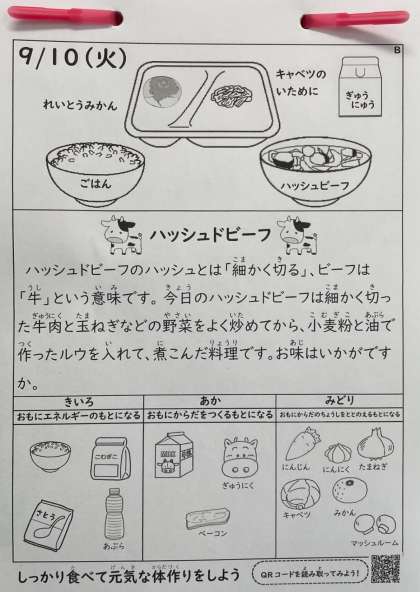 9/10(火)
B
れいとうみかん
キャベツの
いために
ぎゅう
にゅう
ごはん
ハッシュビーフ
ハッシュドビーフ
ハッシュドビーフのハッシュとは「細かく切る」、ビーフは
「牛」という意味です。今日のハッシュドビーフは細かく切っ
た牛肉と玉ねぎなどの野菜をよく炒めてから、小麦粉と油で
作ったルウを入れて、煮こんだ料理です。お味はいかがです
か。
きいろ
おもにエネルギーのもとになる
こむぎこ
さとう
あぶら
あか
おもにからだをつくるもとになる
ぎゅうにく
ベーコン
みどり
おもにからだのちょうしをととのえるもとになる
にんじん
にんにく
たまねぎ
キャベツ
みかん
マッシュルーム
しっかり食べて元気な体作りをしよう
QRコードを読み取ってみよう!